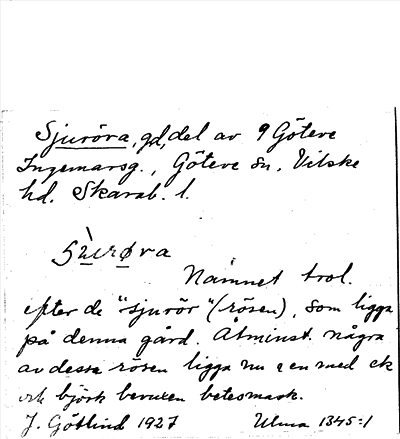 Sjuröra, gd, del av 9 Göteve
Ingemarsg., Göteve sn, Vilske
hd. Skarab. l.
Namnet trol.
efter de "sjurör" (rösen), som ligga
på denna gård. Åtminst. några
av dessa rösen ligga nu i en med ek
och björk bevuxen betesmark.
J. Götlind 1927 Ulma 1345:1